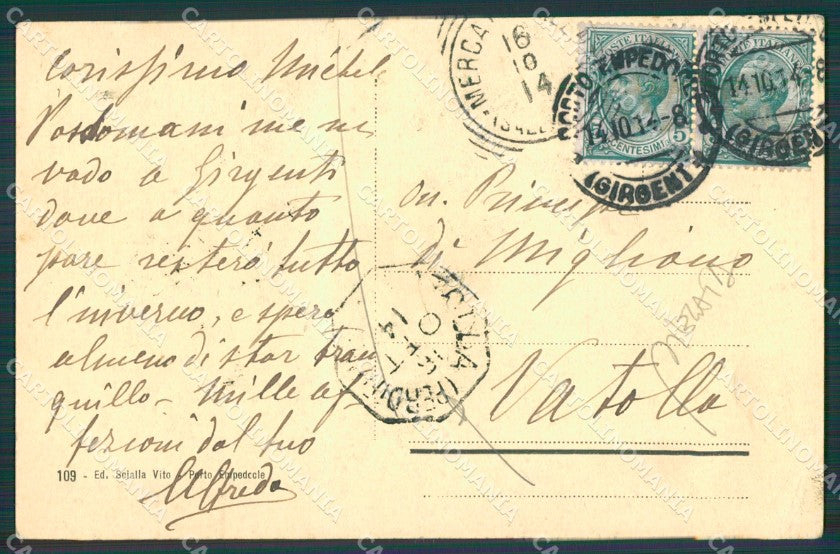 Carissimo Michele
Posdomani me ne
vado a Girgenti
dove a quanto
pare resterò tutto
l'inverno, e spero
almeno di star tran
quillo - Mille af-
fezioni dal tuo
Alfredo
109 - Ed. Scialla Vito - Porto Empedocle
On. Principe
di Migliano
Vatolla
POSTE ITALIANE
CENTESIMI 5
PORTO EMPEDOCLE
14.10.14-8
(GIRGENTI)
PORTO EMPEDOCLE
14.10.14-8
(GIRGENTI)
MERCA
16
10
14
CARTOLINOMANIA